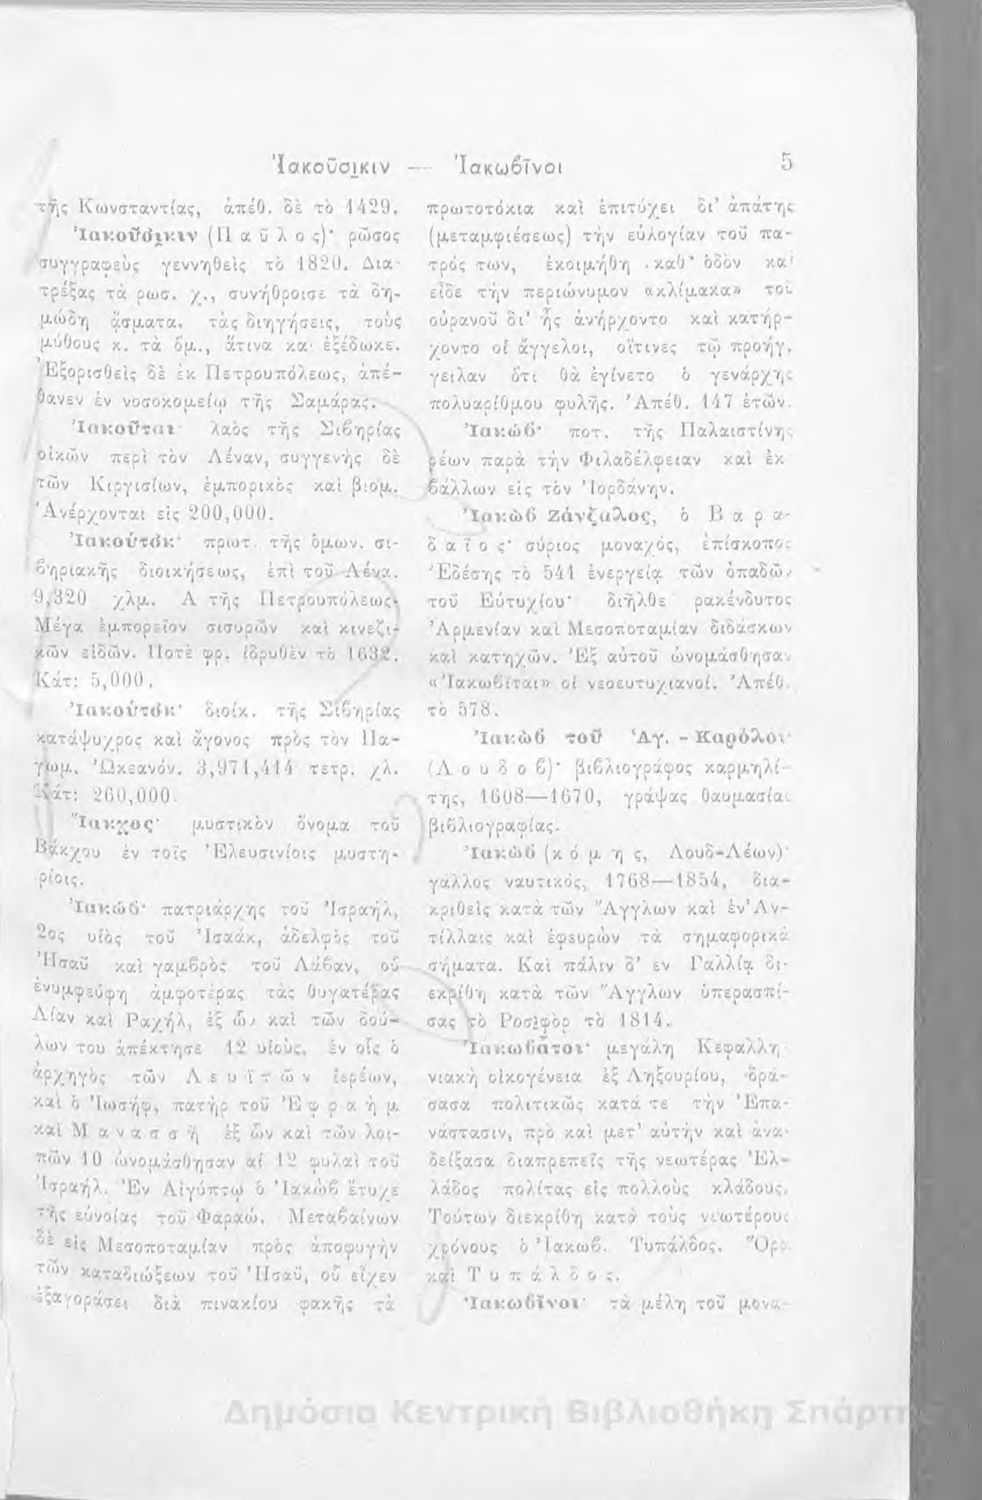 Ἰακοῦσικιν — Ἰακωβῖνοι 5
τῆς Κωνσταντίας, ἀπέθ. δὲ τὸ 1429.
Ἰακοῦσικιν (Παῦλος)· ρῶσος
συγγραφεὺς γεννηθεὶς τὸ 1820. Δια-
τρέξας τὰ ρωσ. χ., συνήθροισε τὰ δη-
μώδη ᾄσματα, τὰς διηγήσεις, τοὺς
μύθους κ. τὰ ὅμ., ἅτινα καὶ ἐξέδωκε.
Ἐξορισθεὶς δὲ ἐκ Πετρουπόλεως, ἀπέ-
θανεν ἐν νοσοκομείῳ τῆς Σαμάρας.
Ἰακοῦται· λαὸς τῆς Σιβηρίας
οἰκῶν περὶ τὸν Λέναν, συγγενὴς δὲ
τῶν Κιργισίων, ἐμπορικὸς καὶ βιομ.
Ἀνέρχονται εἰς 200,000.
Ἰακούτσκ· πρωτ. τῆς ὁμων. σι-
βηριακῆς διοικήσεως, ἐπὶ τοῦ Λένα.
9,320 χλμ. Α τῆς Πετρουπόλεως.
Μέγα ἐμπορεῖον σισυρῶν καὶ κινεζι-
κῶν εἰδῶν. Ποτὲ φρ. ἱδρυθὲν τὸ 1632.
Κάτ: 5,000.
Ἰακούτσκ· διοίκ. τῆς Σιβηρίας
κατάψυχρος καὶ ἄγονος πρὸς τὸν Πα-
γωμ. Ὠκεανόν. 3,971,414 τετρ. χλ.
Κάτ: 260,000.
Ἴακχος· μυστικὸν ὄνομα τοῦ
Βάκχου ἐν τοῖς Ἐλευσινίοις μυστη-
ρίοις.
Ἰακώβ· πατριάρχης τοῦ Ἰσραήλ,
2ος υἱὸς τοῦ Ἰσαάκ, ἀδελφὸς τοῦ
Ἠσαῦ καὶ γαμβρὸς τοῦ Λάβαν, οὗ
ἐνυμφεύφη ἀμφοτέρας τὰς θυγατέρας
Λίαν καὶ Ραχήλ, ἐξ ὧν καὶ τῶν δού-
λων του ἀπέκτησε 12 υἱούς, ἐν οἷς ὁ
ἀρχηγὸς τῶν Λευϊτῶν ἱερέων,
καὶ ὁ Ἰωσήφ, πατὴρ τοῦ Ἐφραὴμ
καὶ Μανασσῆ ἐξ ὧν καὶ τῶν λοι-
πῶν 10 ὠνομάσθησαν αἱ 12 φυλαὶ τοῦ
Ἰσραήλ. Ἐν Αἰγύπτῳ ὁ Ἰακὼβ ἔτυχε
τῆς εὐνοίας τοῦ Φαραώ. Μεταβαίνων
δὲ εἰς Μεσοποταμίαν πρὸς ἀποφυγὴν
τῶν καταδιώξεων τοῦ Ἠσαῦ, οὗ εἶχεν
ἐξαγοράσει διὰ πινακίου φακῆς τὰ
πρωτοτόκια καὶ ἐπιτύχει δι' ἀπάτης
(μεταμφιέσεως) τὴν εὐλογίαν τοῦ πα-
τρός των, ἐκοιμήθη καθ' ὁδὸν καὶ
εἶδε τὴν περιώνυμον «κλίμακα» τοῦ
οὐρανοῦ δι' ἧς ἀνήρχοντο καὶ κατήρ-
χοντο οἱ ἄγγελοι, οἵτινες τῷ προήγ-
γειλαν ὅτι θὰ ἐγίνετο ὁ γενάρχης
πολυαρίθμου φυλῆς. Ἀπέθ. 147 ἐτῶν.
Ἰακώβ· ποτ. τῆς Παλαιστίνης
ρέων παρὰ τὴν Φιλαδέλφειαν καὶ ἐκ
βάλλων εἰς τὸν Ἰορδάνην.
Ἰακὼβ Ζάνζαλος, ὁ Βαρα-
δαῖος· σύριος μοναχός, ἐπίσκοπος
Ἐδέσης τὸ 541 ἐνεργείᾳ τῶν ὀπαδῶν
τοῦ Εὐτυχίου· διῆλθε ρακένδυτος
Ἀρμενίαν καὶ Μεσοποταμίαν διδάσκων
καὶ κατηχῶν. Ἐξ αὐτοῦ ὠνομάσθησαν
«Ἰακωβῖται» οἱ νεοευτυχιανοί. Ἀπέθ.
τὸ 578.
Ἰακὼβ τοῦ Ἁγ. - Καρόλου
(Λουδοβ)· βιβλιογράφος καρμηλί-
της, 1608—1670, γράψας θαυμασίας
βιβλιογραφίας.
Ἰακὼβ (κόμης, Λουδ-Λέων)·
γάλλος ναυτικός, 1768—1854, δια-
κριθεὶς κατὰ τῶν Ἄγγλων καὶ ἐν Ἀν-
τίλλαις καὶ ἐφευρὼν τὰ σημαφορικὰ
σήματα. Καὶ πάλιν δ' εν Γαλλίᾳ δι-
εκρίθη κατὰ τῶν Ἄγγλων ὑπερασπί-
σας τὸ Ροσιφὸρ τὸ 1814.
Ἰακωβᾶτοι· μεγάλη Κεφαλλη-
νιακὴ οἰκογένεια ἐξ Ληξουρίου, δρά-
σασα πολιτικῶς κατά τε τὴν Ἐπα-
νάστασιν, πρὸ καὶ μετ' αὐτὴν καὶ ἀνα-
δείξασα διαπρεπεῖς τῆς νεωτέρας Ἑλ-
λάδος πολίτας εἰς πολλοὺς κλάδους.
Τούτων διεκρίθη κατὰ τοὺς νεωτέρους
χρόνους ὁ Ἰακωβ. Τυπάλδος. Ὅρα
καὶ Τυπάλδος.
Ἰακωβῖνοι· τὰ μέλη τοῦ μονα-
Δημόσια Κεντρική Βιβλιοθήκη Σπάρτη